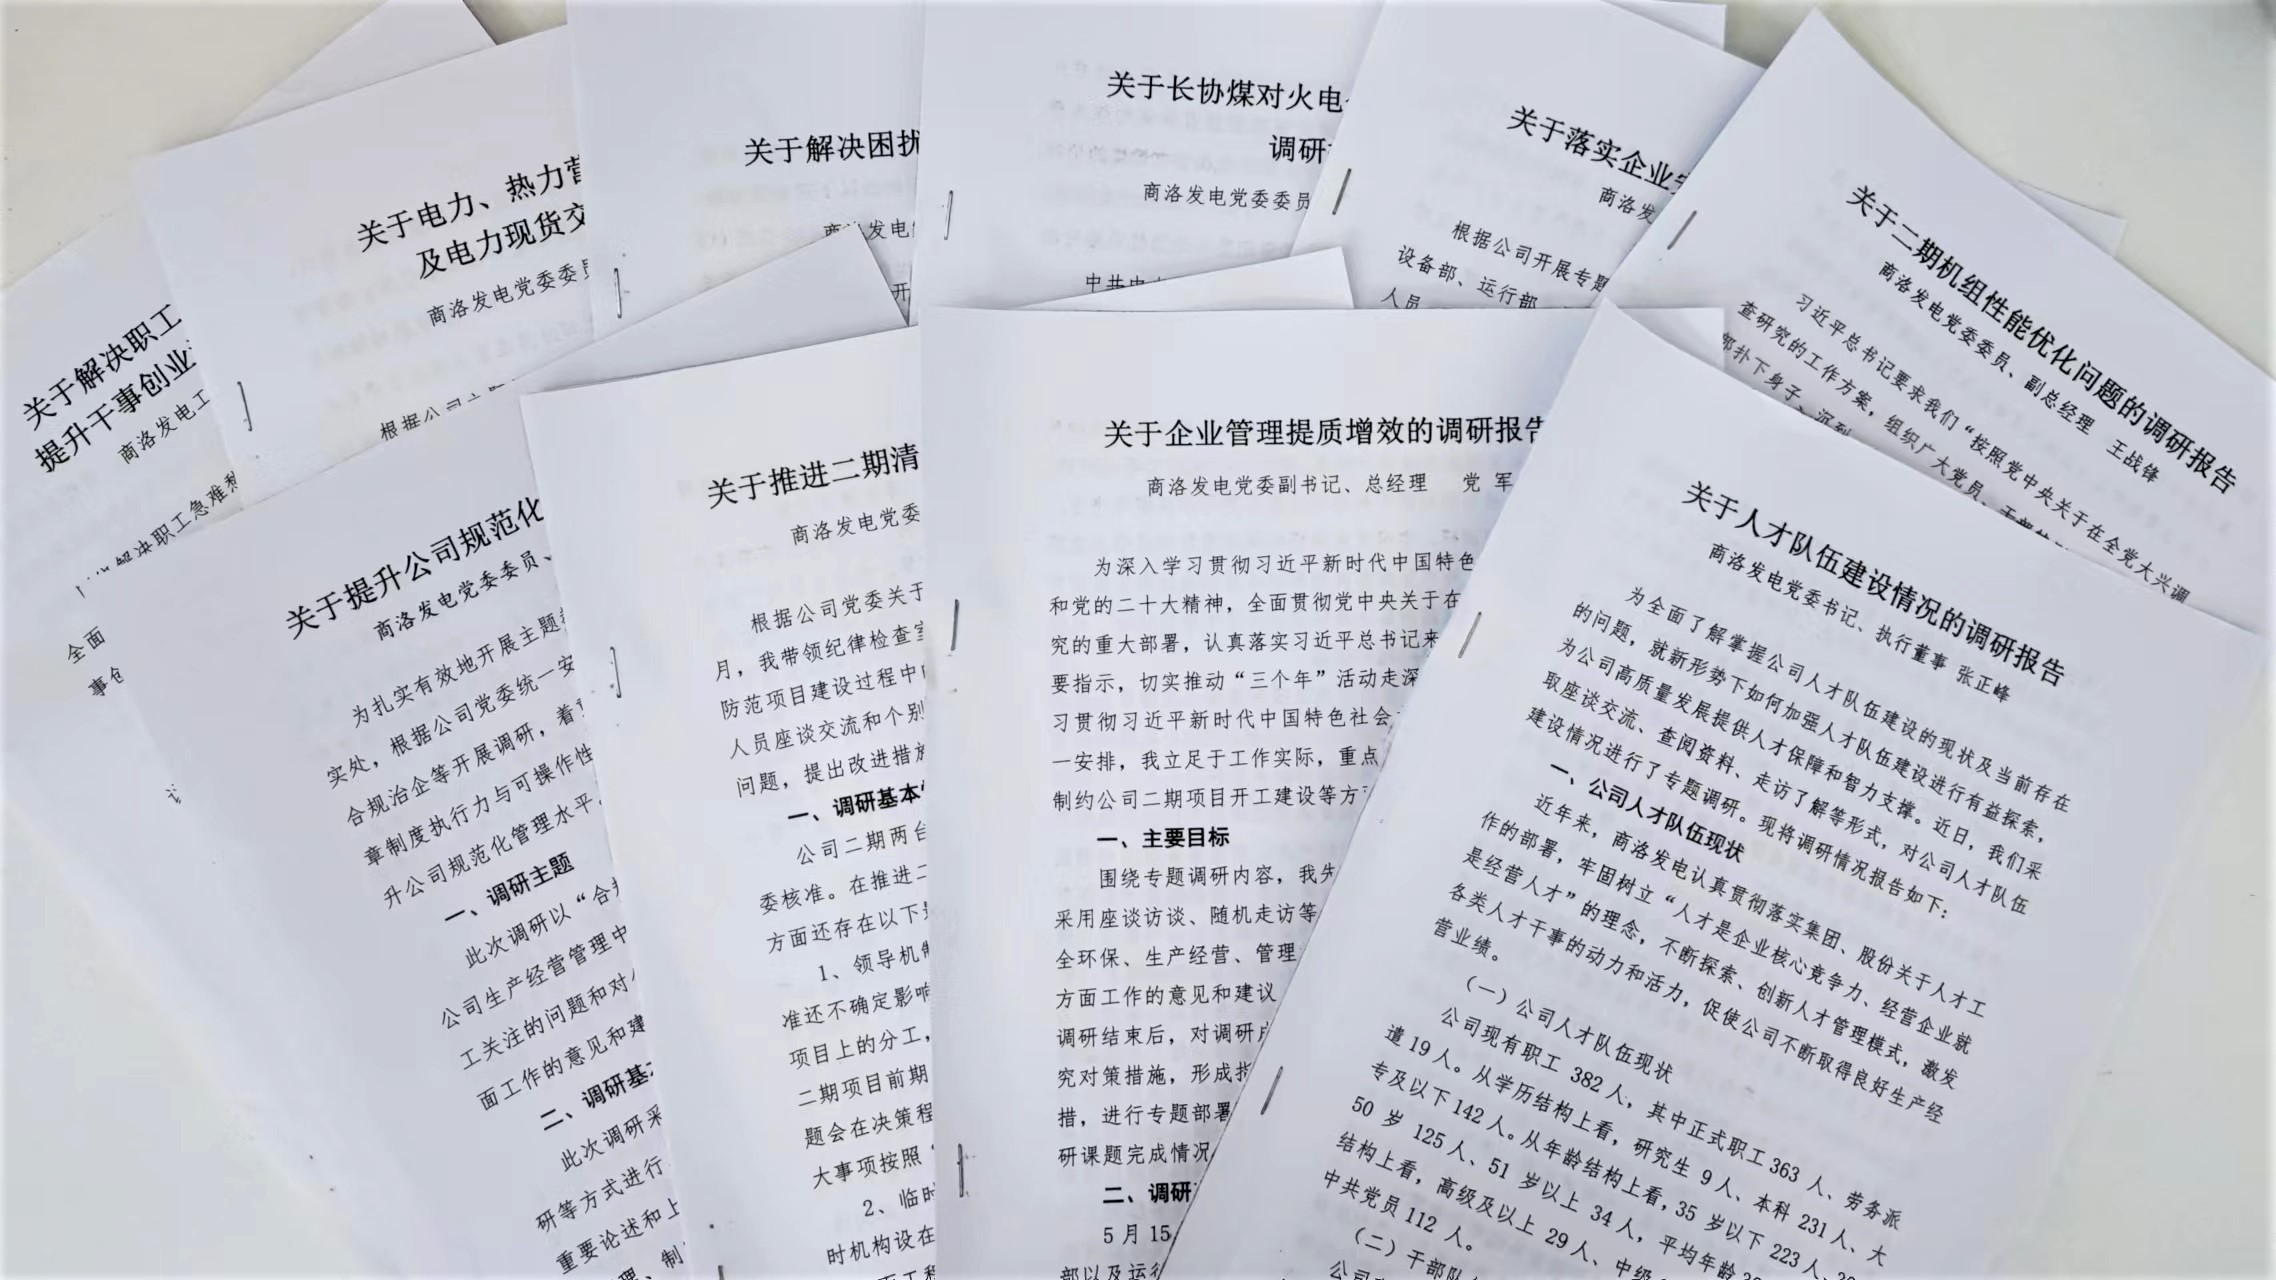 关于解决职工
提升干事创业
商洛发电工
解决职工急难
全面
事
关于电力、热力营
及电力现货交
商洛发电党委委员
根据公司
关于解决困扰
商洛发电
开
关于长协煤对火电
调研
商洛发电党委委员
中共中
关于落实企业
商洛发
根据公司开展专题
设备部、运行部
人员
关于二期机组性能优化问题的调研报告
商洛发电党委委员、副总经理 王战锋
习近平总书记要求我们“按照党中央关于在全党大兴调
查研究的工作方案，组织广大党员、干部
部扑下身子、沉到
关于提升公司规范化
商洛发电党委委员、
为扎实有效地开展主题
实处，根据公司党委统一安
合规治企等开展调研，着
章制度执行力与可操作性
升公司规范化管理水平。
一、调研主题
此次调研以“合
公司生产经营管理中
工关注的问题和对
面工作的意见和建
二、调研基
此次调研采
研等方式进行
重要论述和上
理、制
关于推进二期清
商洛发电党委
根据公司党委关于
月，我带领纪律检查室
防范项目建设过程中
人员座谈交流和个别
问题，提出改进措施
一、调研基本
公司二期两台
委核准。在推进二
方面还存在以下
1、领导机
准还不确定影响
项目上的分工，
二期项目前期
题会在决策程
大事项按照“
2、临时
时机构设在
关于企业管理提质增效的调研报告
商洛发电党委副书记、总经理 党 军
为深入学习贯彻习近平新时代中国特色
和党的二十大精神，全面贯彻党中央关于在
究的重大部署，认真落实习近平总书记来
要指示，切实推动“三个年”活动走深
习贯彻习近平新时代中国特色社会
一安排，我立足于工作实际，重点
制约公司二期项目开工建设等方
一、主要目标
围绕专题调研内容，我先
采用座谈访谈、随机走访等
全环保、生产经营、管理
方面工作的意见和建议
调研结束后，对调研
究对策措施，形成
措，进行专题部署
研课题完成情况
二、调研
5月15
部以及运行
关于人才队伍建设情况的调研报告
商洛发电党委书记、执行董事 张正峰
为全面了解掌握公司人才队伍建设的现状及当前存在
的问题，就新形势下如何加强人才队伍建设进行有益探索，
为公司高质量发展提供人才保障和智力支撑。近日，我们采
取座谈交流、查阅资料、走访了解等形式，对公司人才队伍
建设情况进行了专题调研。现将调研情况报告如下：
一、公司人才队伍现状
近年来，商洛发电认真贯彻落实集团、股份关于人才工
作的部署，牢固树立“人才是企业核心竞争力、经营企业就
是经营人才”的理念，不断探索、创新人才管理模式，激发
各类人才干事的动力和活力，促使公司不断取得良好生产经
营业绩。
（一）公司人才队伍现状
公司现有职工 382 人，其中正式职工 363 人、劳务派
遣 19 人。从学历结构上看，研究生 9 人、本科 231 人、大
专及以下 142 人。从年龄结构上看，35 岁以下 223 人、
50 岁 125 人、51 岁以上 34 人，平均年龄
结构上看，高级及以上 29 人、中级
中共党员 112 人。
（二）干部队
公司